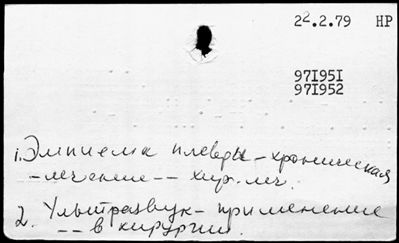 22.2.79 НР
97I95I
97I952
1. Эмпиема плевры - хроническая
- лечение -- хир. леч.
2. Ультразвук - применение
-- в хирургии.